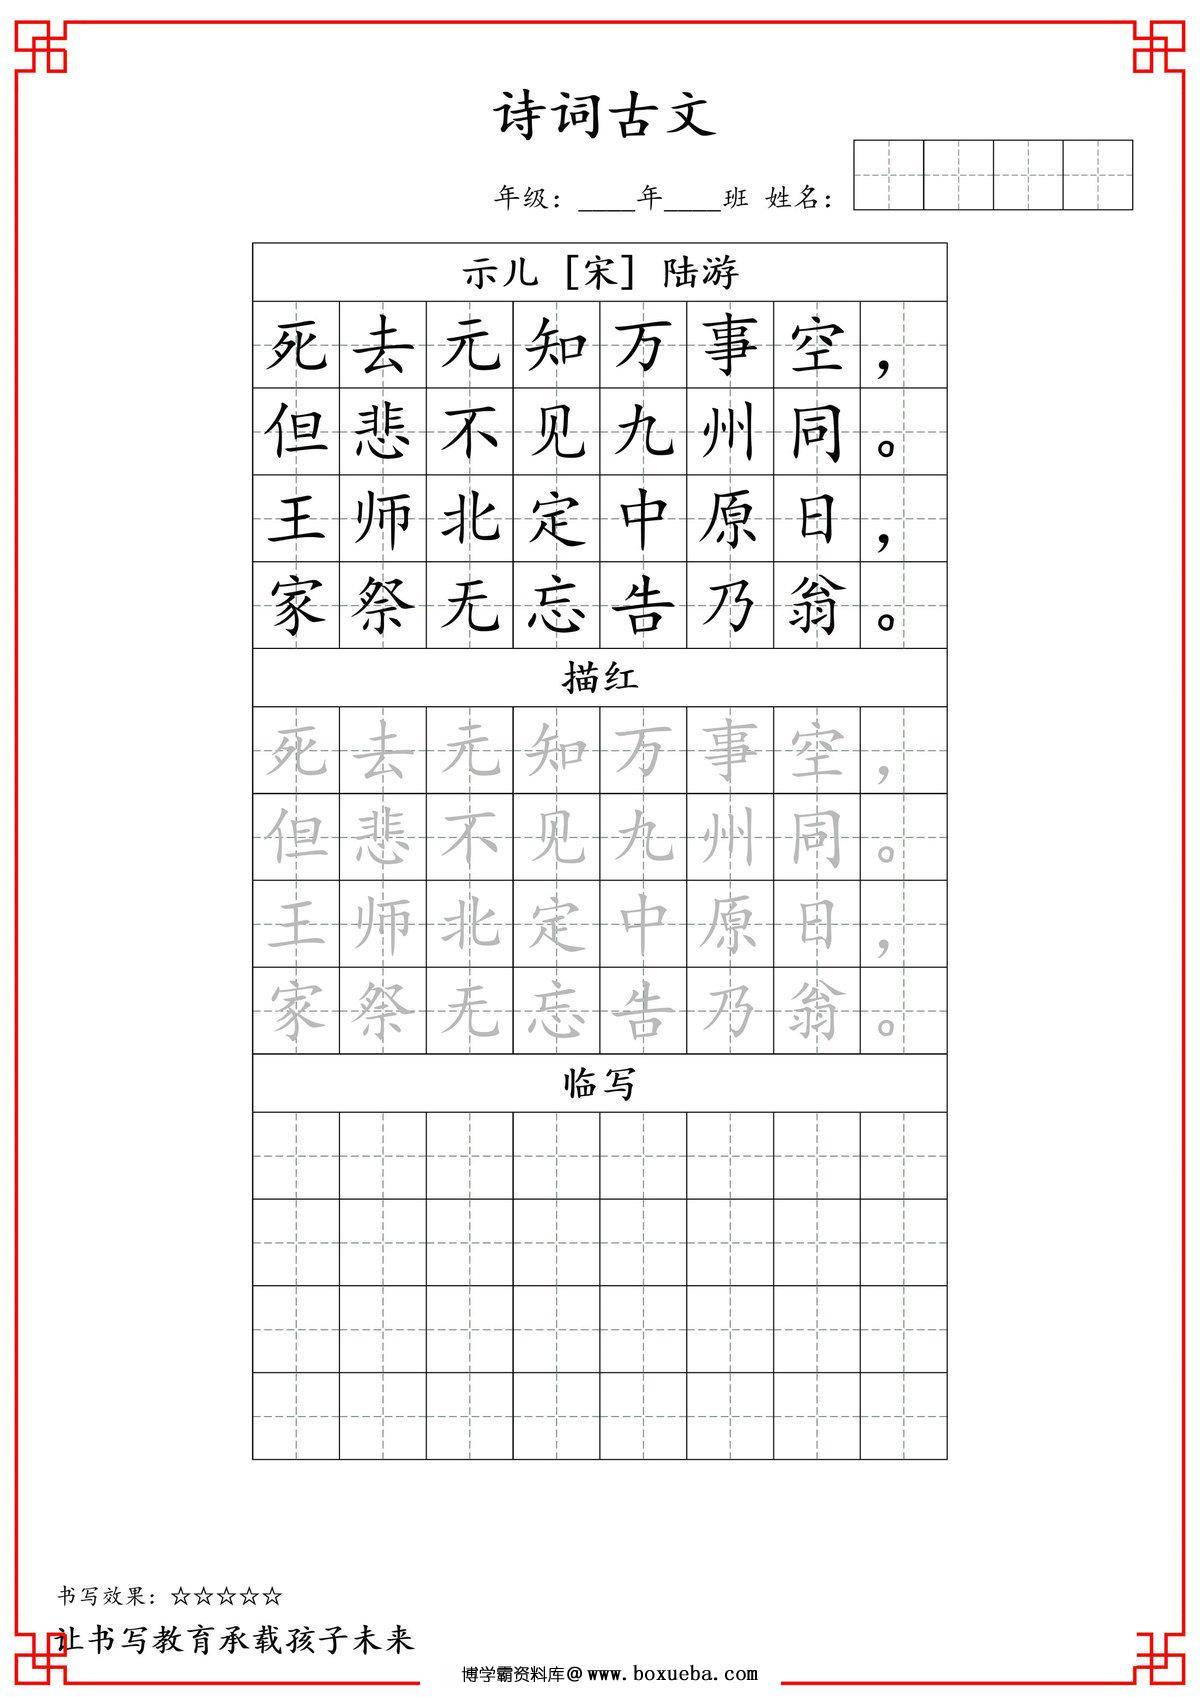 诗词古文
年级：____年____班 姓名：
示儿 [宋] 陆游
死去元知万事空，
但悲不见九州同。
王师北定中原日，
家祭无忘告乃翁。
描红
死去元知万事空，
但悲不见九州同。
王师北定中原日，
家祭无忘告乃翁。
临写
书写效果：☆☆☆☆☆
让书写教育承载孩子未来
博学霸资料库@www.boxueba.com